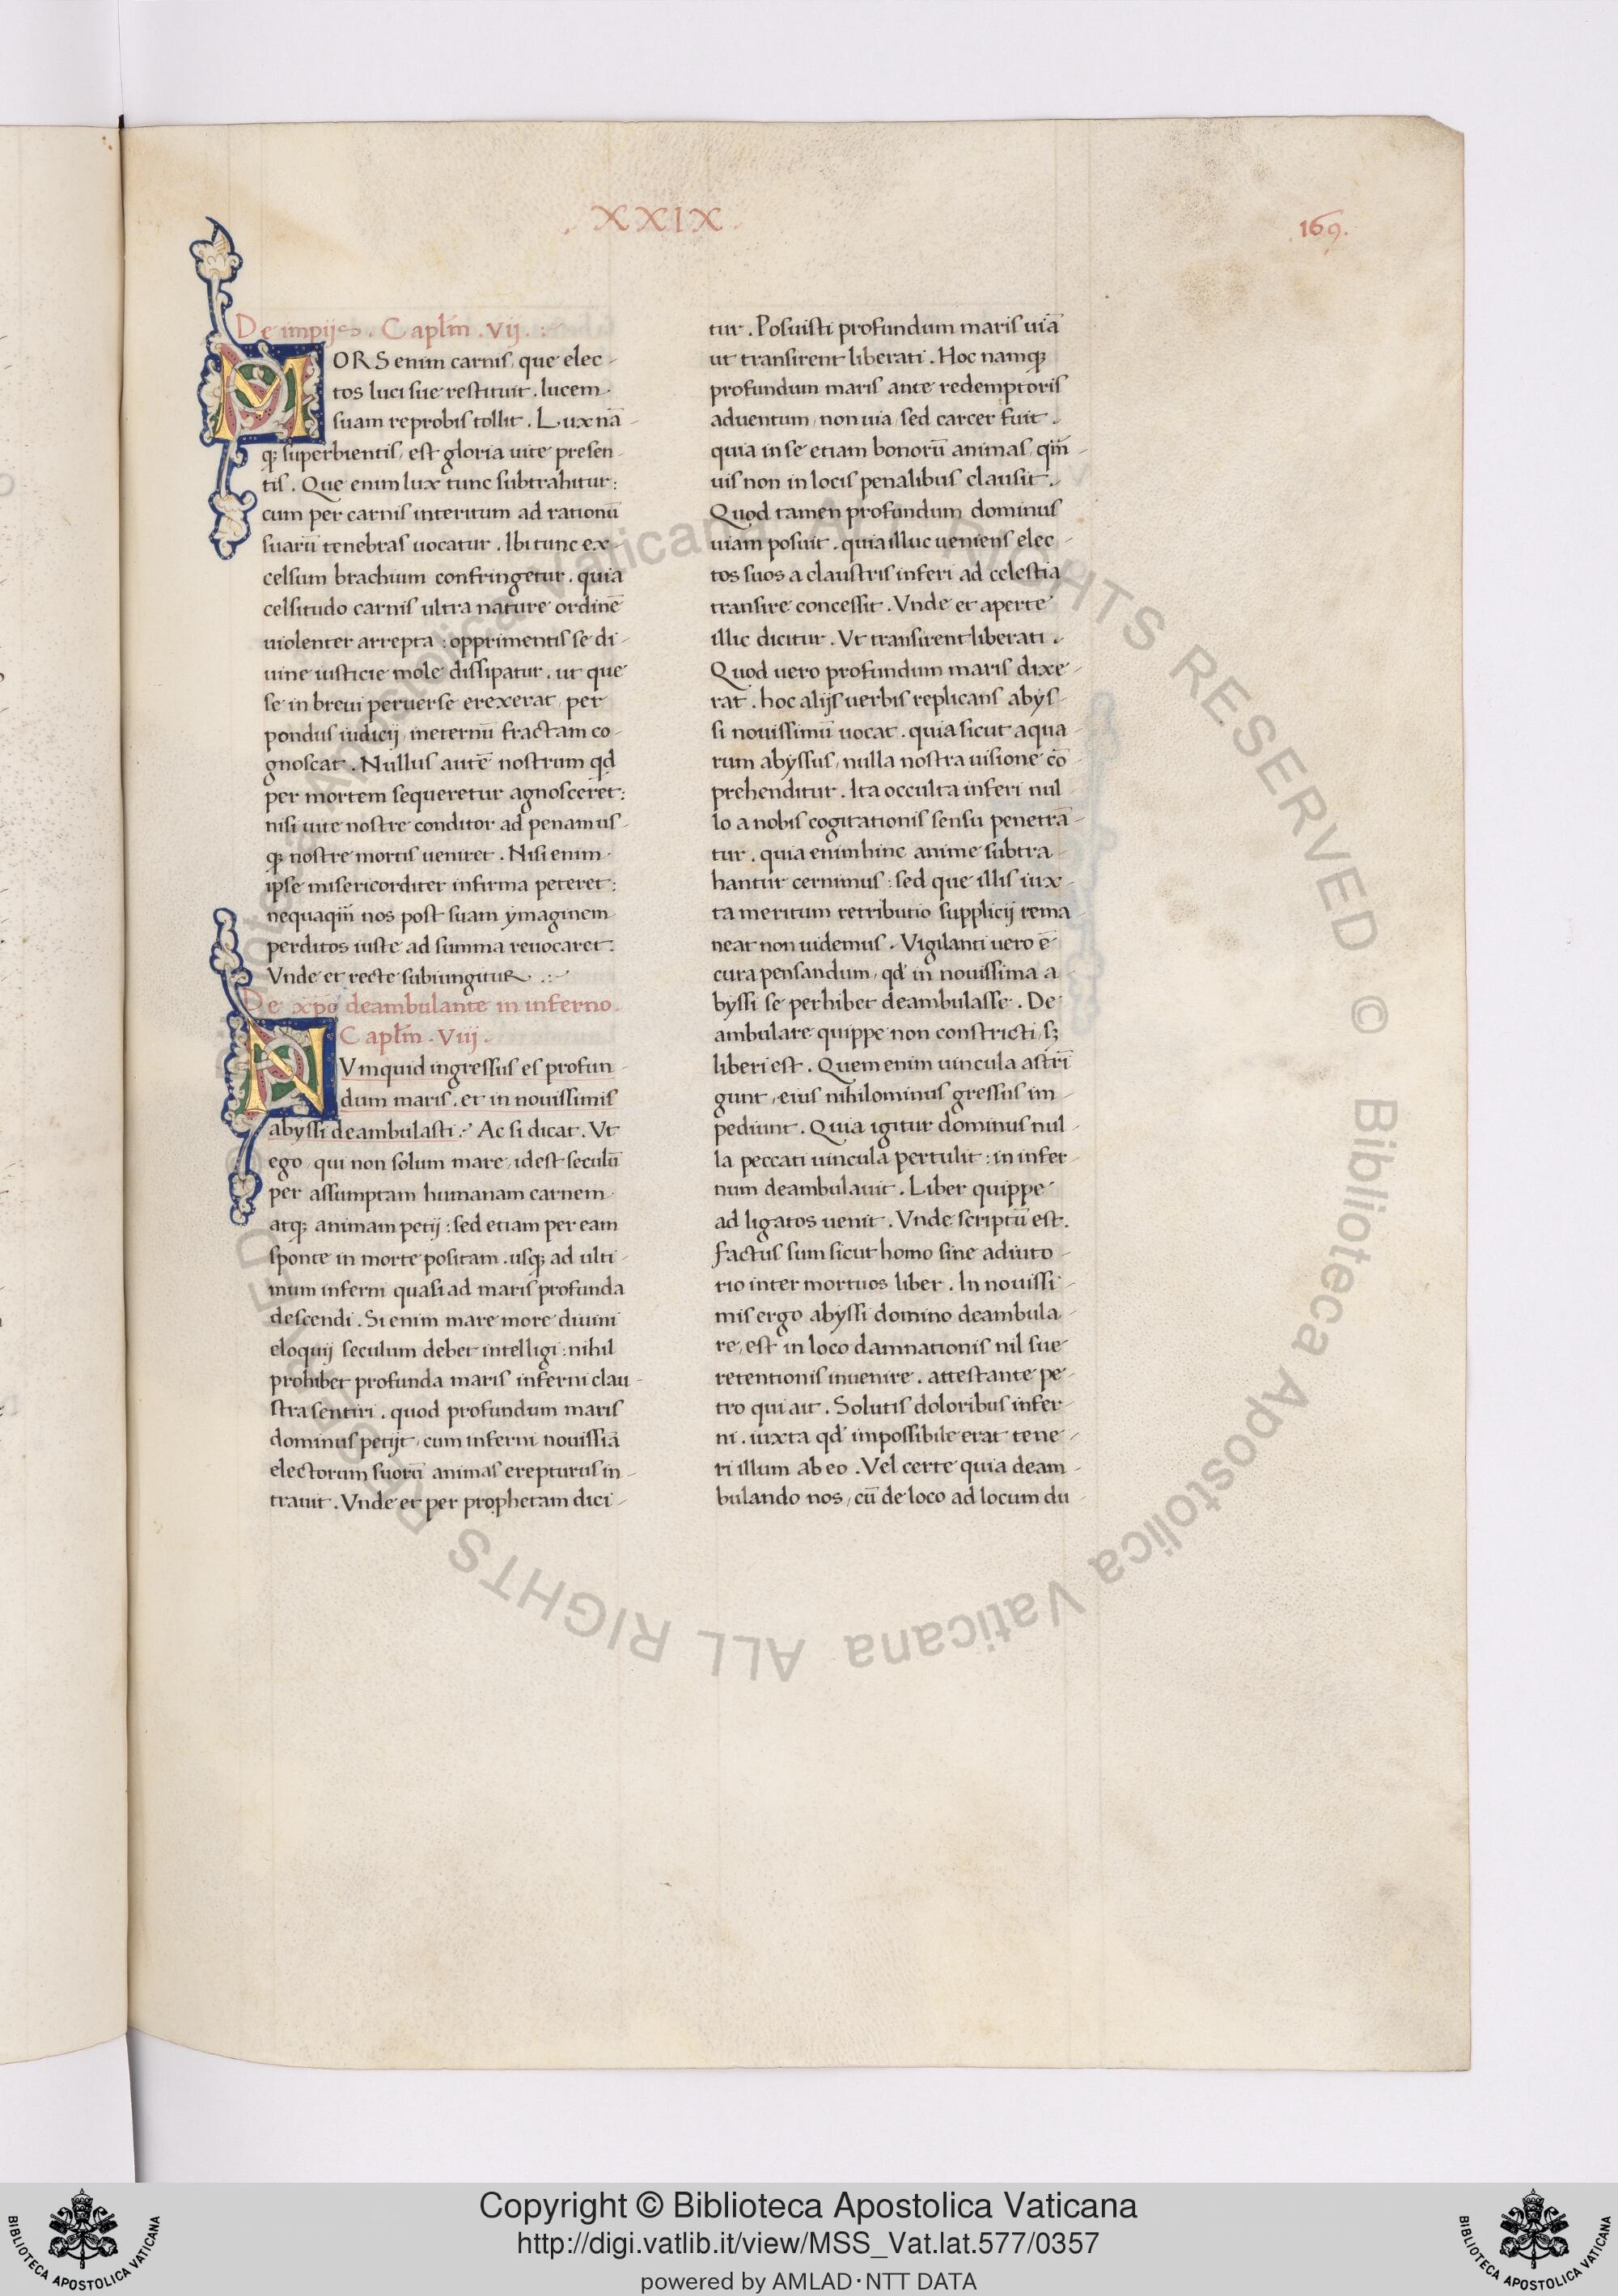 . XXIX .
169.
De impijs . Capl̄m . Vij . :
MORS enim carnis, que elec-
tos luci sue restituit . lucem
suam reprobis tollit . Lux nā-
q; superbientis, est gloria uite presen-
tis . Que enim lux tunc subtrahitur:
cum per carnis interitum ad rationū
suarū tenebras uocatur . Ibi tunc ex-
celsum brachium confringetur . quia
celsitudo carnis ultra nature ordinē
uiolenter arrepta : opprimentis se di-
uine iusticie mole dissipatur . ut que
se in breui peruerse erexerat, per
pondus iudicij, ineternū fractam co-
gnoscat . Nullus autē nostrum qd
per mortem sequeretur agnosceret:
nisi uite nostre conditor ad penam us-
q; nostre mortis ueniret . Nisi enim
ipse misericorditer infirma peteret:
nequaqm̄ nos post suam ymaginem
perditos iuste ad summa reuocaret.
Vnde et recte subiungitur . :-
De xpo deambulante in inferno.
Capl̄m . Viij .
NVmquid ingressus es profun-
dum maris . et in nouissimis
abyssi deambulasti .' Ac si dicat . Vt
ego, qui non solum mare, idest seculū
per assumptam humanam carnem
atq; animam petij : sed etiam per eam
sponte in morte positam . usq; ad ulti-
mum inferni quasi ad maris profunda
descendi . Si enim mare more diuini
eloquij seculum debet intelligi : nihil
prohibet profunda maris inferni clau-
stra sentiri . quod profundum maris
dominus petijt, cum inferni nouissiā
electorum suorū animas erepturus in-
trauit . Vnde et per prophetam dici-
tur . Posuisti profundum maris uiā
ut transirent liberati . Hoc namq;
profundum maris ante redemptoris
aduentum, non uia, sed carcer fuit .
quia in se etiam bonorū animas, qm̄-
uis non in locis penalibus clausit .
Quod tamen profundum dominus
uiam posuit . quia illuc ueniens elec-
tos suos a claustris inferi ad celestia
transire concessit . Vnde et aperte
illic dicitur . Vt transirent liberati .
Quod uero profundum maris dixe-
rat . hoc alijs uerbis replicans abys-
si nouissimū uocat . quia sicut aqua
rum abyssus, nulla nostra uisione cō-
prehenditur . Ita occulta inferi nul-
lo a nobis cogitationis sensu penetrā-
tur . quia enim hinc anime subtra-
hantur cernimus : sed que illis iux-
ta meritum retributio supplicij rema
neat non uidemus . Vigilanti uero ē
cura pensandum, qd in nouissima a-
byssi se perhibet deambulasse . De
ambulare quippe non constricti, sȝ
liberi est . Quem enim uincula astrī
gunt, eius nihilominus gressus im-
pediunt . Quia igitur dominus nul-
la peccati uincula pertulit : in infer-
num deambulauit . Liber quippe
ad ligatos uenit . Vnde scriptū est.
factus sum sicut homo sine adiuto-
rio inter mortuos liber . In nouissi-
mis ergo abyssi domino deambula-
re, est in loco damnationis nil sue
retentionis inuenire . attestante pe-
tro qui ait . Solutis doloribus infer-
ni . iuxta qd impossibile erat tene-
ri illum ab eo . Vel certe quia deam-
bulando nos, cū de loco ad locum du-
Biblioteca Apostolica Vaticana ALL RIGHTS RESERVED © Biblioteca Apostolica Vaticana ALL RIGHTS RESERVED ©
Copyright © Biblioteca Apostolica Vaticana
http://digi.vatlib.it/view/MSS_Vat.lat.577/0357
powered by AMLAD·NTT DATA
BIBLIOTECA APOSTOLICA VATICANA
BIBLIOTECA APOSTOLICA VATICANA